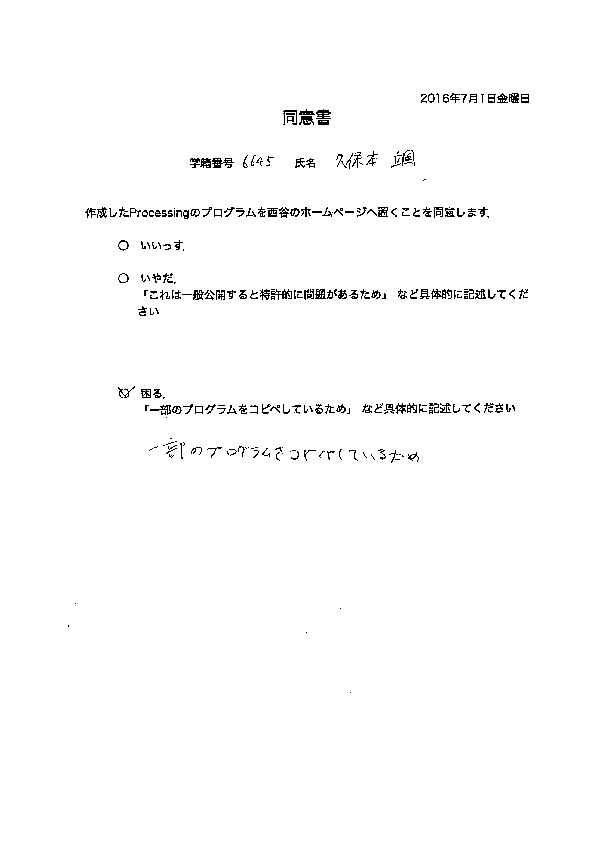 2016年7月1日金曜日
同意書
学籍番号 6645 氏名 久保本
作成したProcessingのプログラムを西谷のホームページへ置くことを同意します.
○ いいっす.
○ いやだ.
「これは一般公開すると特許的に問題があるため」 など具体的に記述してくだ
さい
○ 困る.
「一部のプログラムをコピペしているため」 など具体的に記述してください
一部のプログラムをコピペしているため